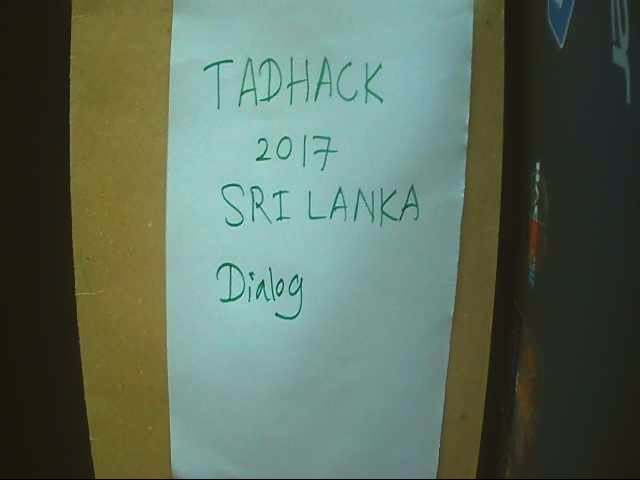 TADHACK
2017
SRI LANKA
Dialog